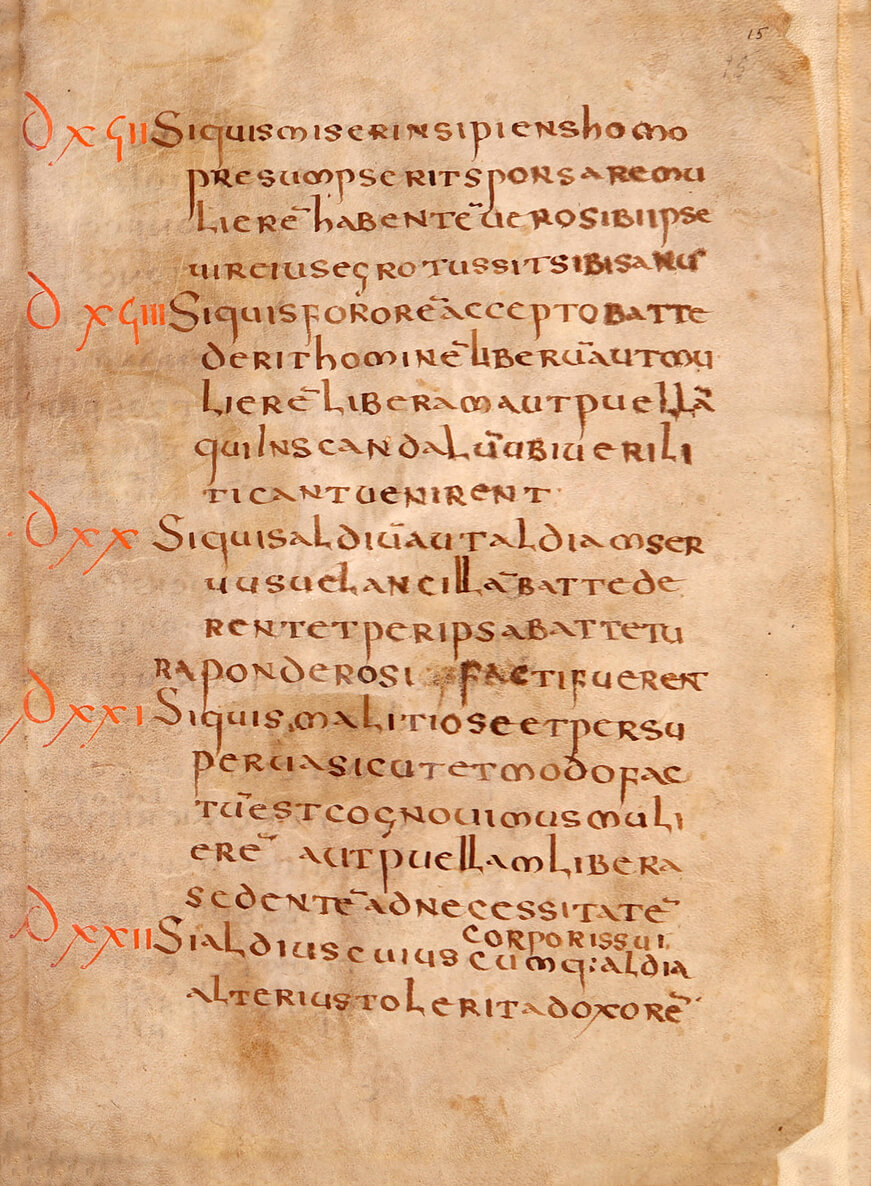 15
15
D XϚII Siquismiserinsipienshomo
presumpseritsponsaremu
lierē habentē uerosibiipse
uirciusegrotussitsibisanus
D XϚIII Siquis fororēaccepto batte
derithominē liberūautmu
lierē liberamautpuellā
quiinscandalūubiuerili
ticantuenirent
D XX Siquisaldiūautaldiamser
uusuelancillābattede
rentetperipsabattetu
raponderosi factifuerent
D XXI Siquis malitioseetpersu
peruasicutetmodofac
tūestcognouimusmuli
erē autpuellamlibera
sedentēadnecessitatē
corporissui
D XXII Sialdiuscuiuscumq:aldia
alteriustoleritadoxorē